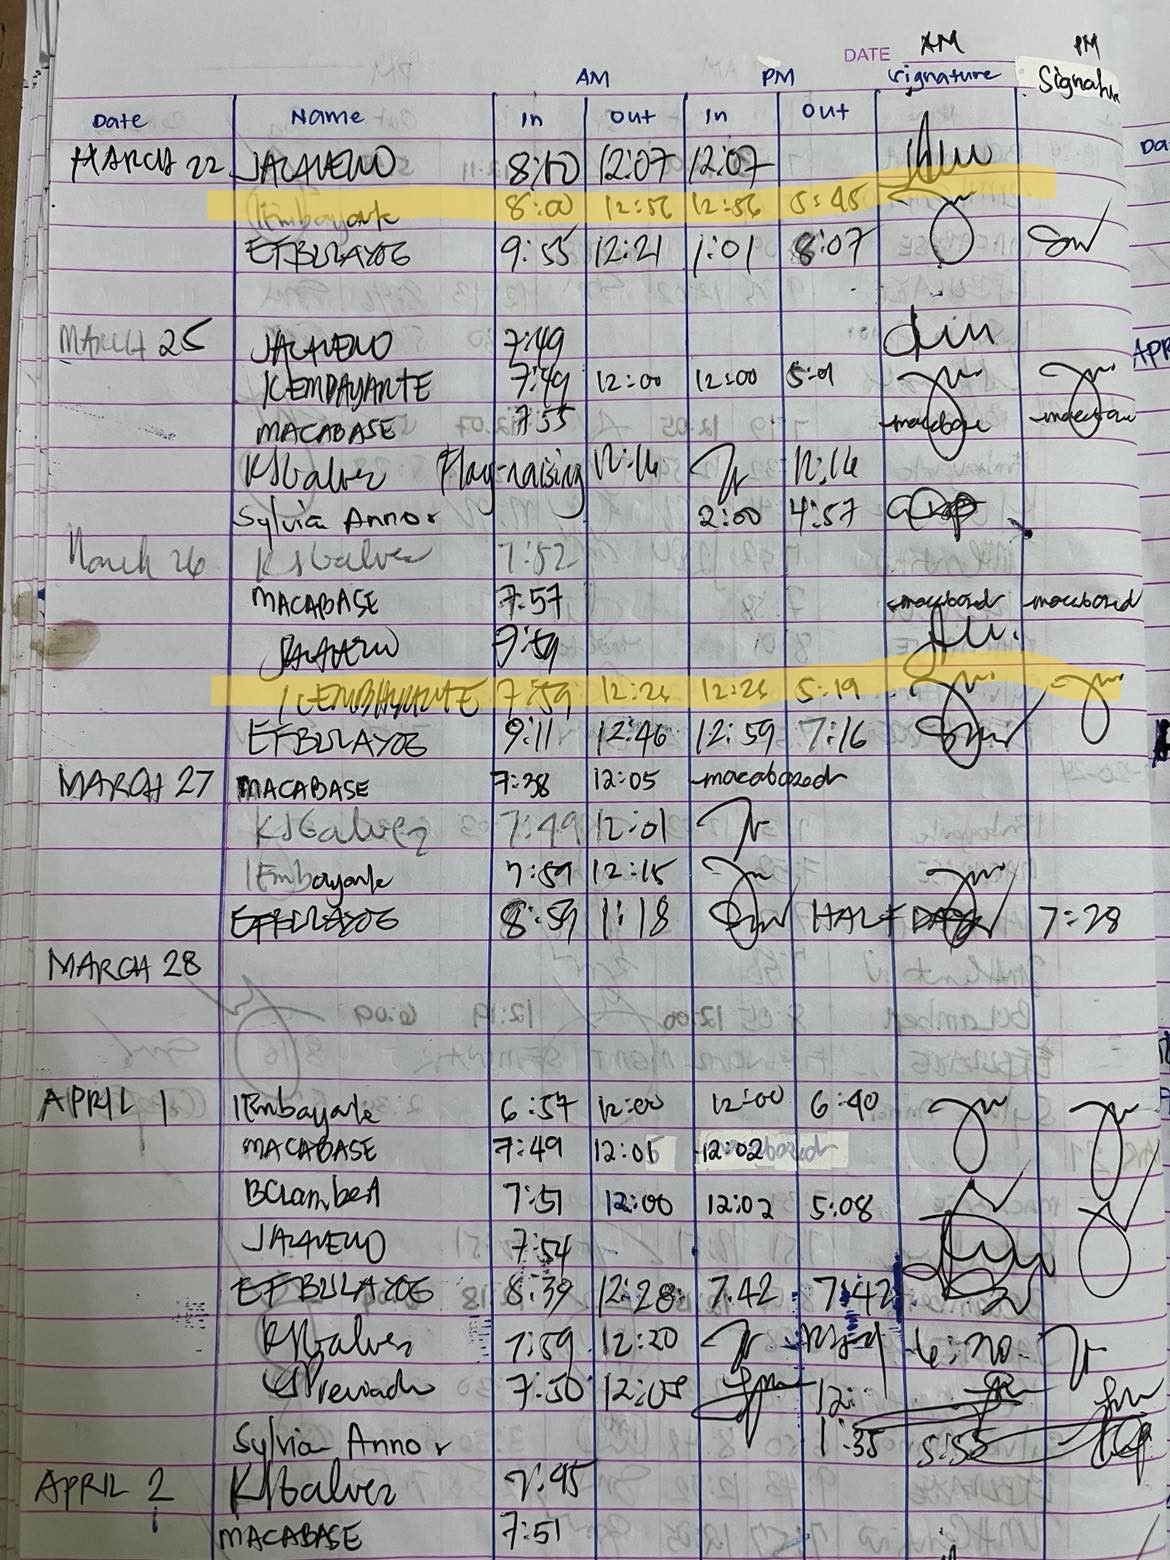 DATE AM PM
AM PM signature Signature
Date Name In Out In Out
MARCH 22 JALAVENO 8:10 12:07 12:07
KEmbayante 8:00 12:56 12:56 5:45
EFBULAYOG 9:55 12:21 1:01 8:07
MARCH 25 JALAVENO 7:49
KEMBAYANTE 7:49 12:00 12:00 5:01
MACABASE 7:55
KSGalvez Flag-raising 12:16 12:16
Sylvia Annor 2:00 4:57
March 26 KSGalvez 7:52
MACABASE 7:57
JALAVENO 7:59
KEMBAYANTE 7:59 12:26 12:26 5:19
EFBULAYOG 9:11 12:46 12:59 7:16
MARCH 27 MACABASE 7:38 12:05
KSGalvez 7:49 12:01
KEmbayante 7:59 12:15
EFBULAYOG 8:59 1:18 HALF DAY 7:28
MARCH 28
APRIL 1 KEmbayante 6:57 12:00 12:00 6:40
MACABASE 7:49 12:05 12:02
BCLambert 7:51 12:00 12:02 5:08
JALAVENO 7:54
EFBULAYOG 8:39 12:28 7:42 7:42
KSGalvez 7:59 12:20 6:20
7:50 12:05 12:
Sylvia Annor 1:35 5:55
APRIL 2 KSGalvez 7:45
MACABASE 7:51